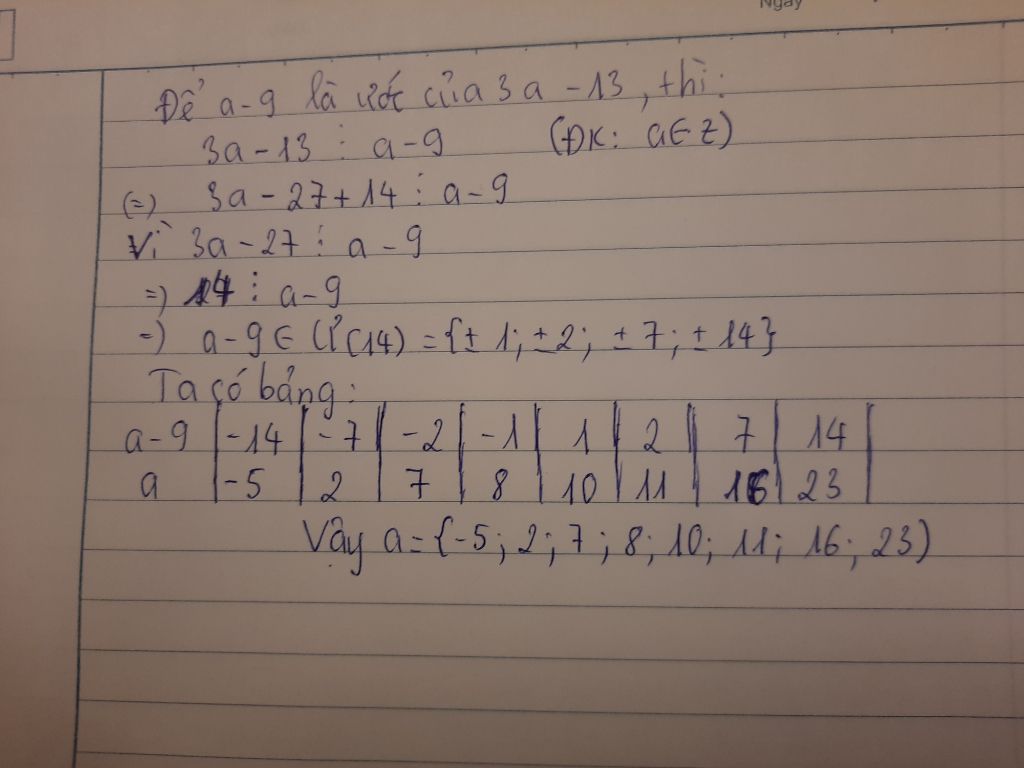 Ngày
Để a-9 là ước của 3a -13, thì:
3a-13 ⋮ a-9 (ĐK: a∈Z)
(=) 3a-27+14 ⋮ a-9
Vì 3a-27 ⋮ a-9
=) 14 ⋮ a-9
=) a-9 ∈ Ư(14) = {±1; ±2; ±7; ±14}
Ta có bảng:
a-9 | -14 | -7 | -2 | -1 | 1 | 2 | 7 | 14 |
a | -5 | 2 | 7 | 8 | 10 | 11 | 16 | 23 |
Vậy a={-5; 2; 7; 8; 10; 11; 16; 23)